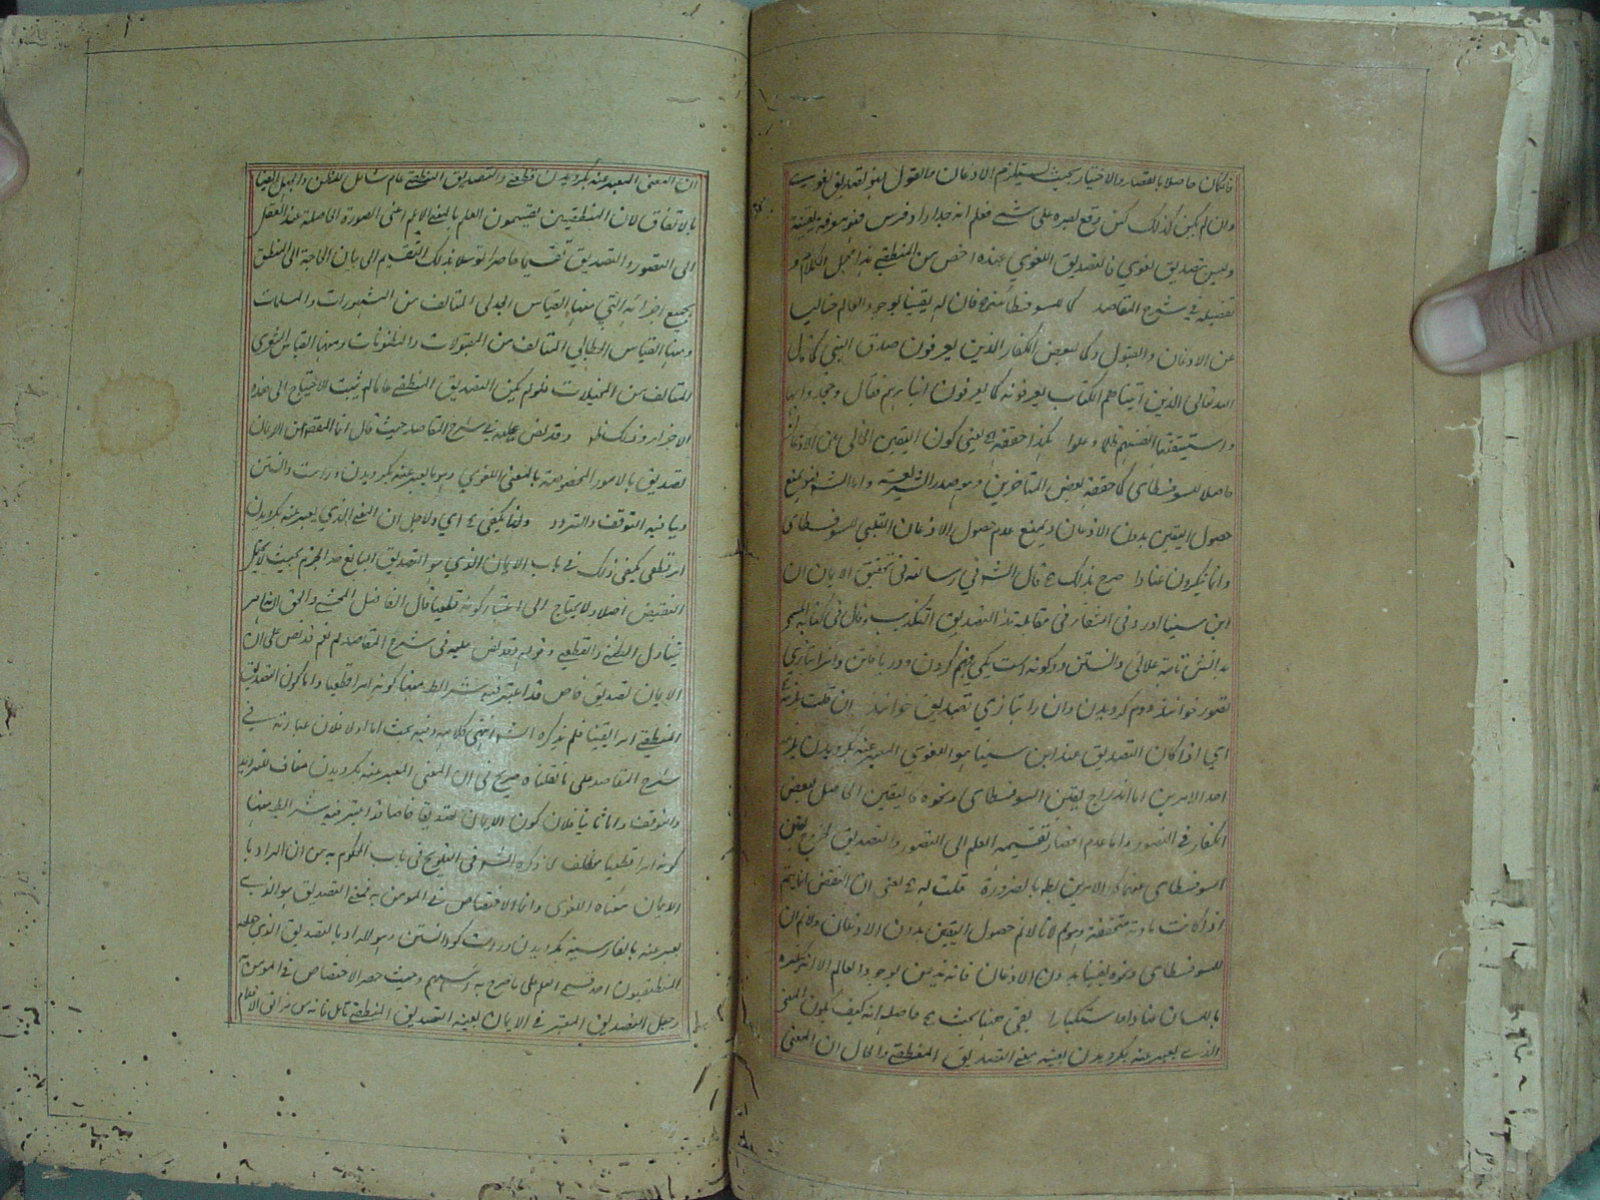 فان كان حاصلا بالقصد والاختيار بحيث يستلزم الاذعان والقول فهو تصديق لغوي
وان لم يكن كذلك كمن وقع بصره على شيء فعلم انه جدار او فرس فهو معرفة يقينية
وليس بتصديق لغوي فالتصديق اللغوي عنده اخص من المنطقي هذا مجمل الكلام و
تفصيله في شرح المقاصد كما للسوفسطائي فان له يقينا بوجود العالم خاليا
عن الاذعان والقبول وكما لبعض الكفار الذين يعرفون صدق النبي كما قال
الله تعالى الذين آتيناهم الكتاب يعرفونه كما يعرفون ابناءهم فقال وجحدوا بها
واستيقنتها انفسهم ظلما وعلوا هكذا حققه يعني كون اليقين الخالي عن الاذعان
حاصلا للسوفسطائي كما حققه بعض المتأخرين وهو صدر الشريعة واما الشه فهو يمنع
حصول اليقين بدون الاذعان ويمنع عدم حصول الاذعان القلبي للسوفسطائي
وانما ينكرون عنادا صرح بذلك قال الشه في رسالته في تحقيق الايمان ان
ابن سينا اورد في الشفاء في مقابلة هذا التصديق التكذيب وقال في كتابه المسمى
بدانش نامه علائي دانستن دو گونه است يكى فهم كردن و دريافتن وانرا بتازي
تصور خوانند دوم گرويدن وان را بتازي تصديق خوانند ان قلت
اي اذا كان التصديق عند ابن سينا هو اللغوي المعبر عنه بگرويدن يلزم
احد الامرين اما اندراج يقين السوفسطائي ونحوه كاليقين الحاصل لبعض
الكفار في التصور واما عدم انحصار تقسيمه العلم الى التصور والتصديق لخروج يقين
السوفسطائي عنهما وكلا الامرين بط بالضرورة قلت له يعني ان النقض انما يتم
اذا كانت مادته متحققة وهو مم لانا لا نم حصول اليقين بدون الاذعان ولا نم ان
للسوفسطائي ونحوه يقينا بدون الاذعان فانه بوجود العالم الا انه ينكره
باللسان عنادا واستكبارا بقي ههنا بحث حاصله انه كيف يكون المعنى
الذي يعبر عنه بگرويدن بعينه معنى التصديق المنطقي والحال ان المعنى
ان المعنى المعبر عنه بگرويدن قطعي والتصديق المنطقي عام شامل للظن والجهل ايضا
بالاتفاق لان المنطقيين يقسمون العلم بالمعنى الاعم اعني الصورة الحاصلة عند العقل
الى التصور والتصديق تقسيما حاصرا توسلا بذلك التقسيم الى بيان الحاجة الى المنطق
بجميع اجزائه التي منها القياس الجدلي المتألف من المشهورات والمسلمات
ومنها القياس الخطابي المتألف من المقبولات والمظنونات ومنها القياس الشعري
المتألف من المخيلات فلو لم يكن التصديق المنطقي عاما لم يثبت الاحتياج الى هذه
الاجزاء وذلك ظ وقد نص عليه في شرح المقاصد حيث قال انا المقصد من الايمان
تصديق بالامور المخصوصة بالمعنى اللغوي وهو ما يعبر عنه بگرويدن و راست دانستن
وينافيه التوقف والتردد ولذا يكفي اي ولاجل ان المعنى الذي يعبر عنه بگرويدن
امر قطعي يكفي ذلك في باب الايمان الذي هو التصديق البالغ حد الجزم بحيث لا يحتمل
النقيض اصلا ولا يحتاج الى اعتبار كونه قطعيا قال الفاضل المحشي والحق الظاهر
يتناول الظني والقطعي وقوله وقد نص عليه في شرح المقاصد مم نعم قد نص على ان
الايمان تصديق خاص قد اعتبر فيه شرائط منها كونه امرا قطعيا واما كون التصديق
المنطقي امرا يقينيا فلم يذكره الشه انتهى كلامه وفيه بحث اما اولا فلان عبارته في
شرح المقاصد على ما نقلناه صريح في ان المعنى المعبر عنه بگرويدن مناف للترديد
والتوقف واما ثانيا فلان كون الايمان تصديقا خاصا قد اعتبر فيه شرائط منها
كونه امرا قطعيا مخالف لما ذكره الشه في التلويح في باب المحكوم به من ان المراد با
الايمان معناه اللغوي وانما الاختصاص في المؤمن به فمعنى التصديق هو الذي
يعبر عنه بالفارسية بگرويدن و راست گو دانستن وهو المراد بالتصديق الذي جعله
المنطقيون احد قسمي العلم على ما صرح به رئيسهم وحيث حصر الاختصاص في المؤمن به
وجعل التصديق المعتبر في الايمان بعينه التصديق المنطقي تأمل فانه من مزالق الاقدام